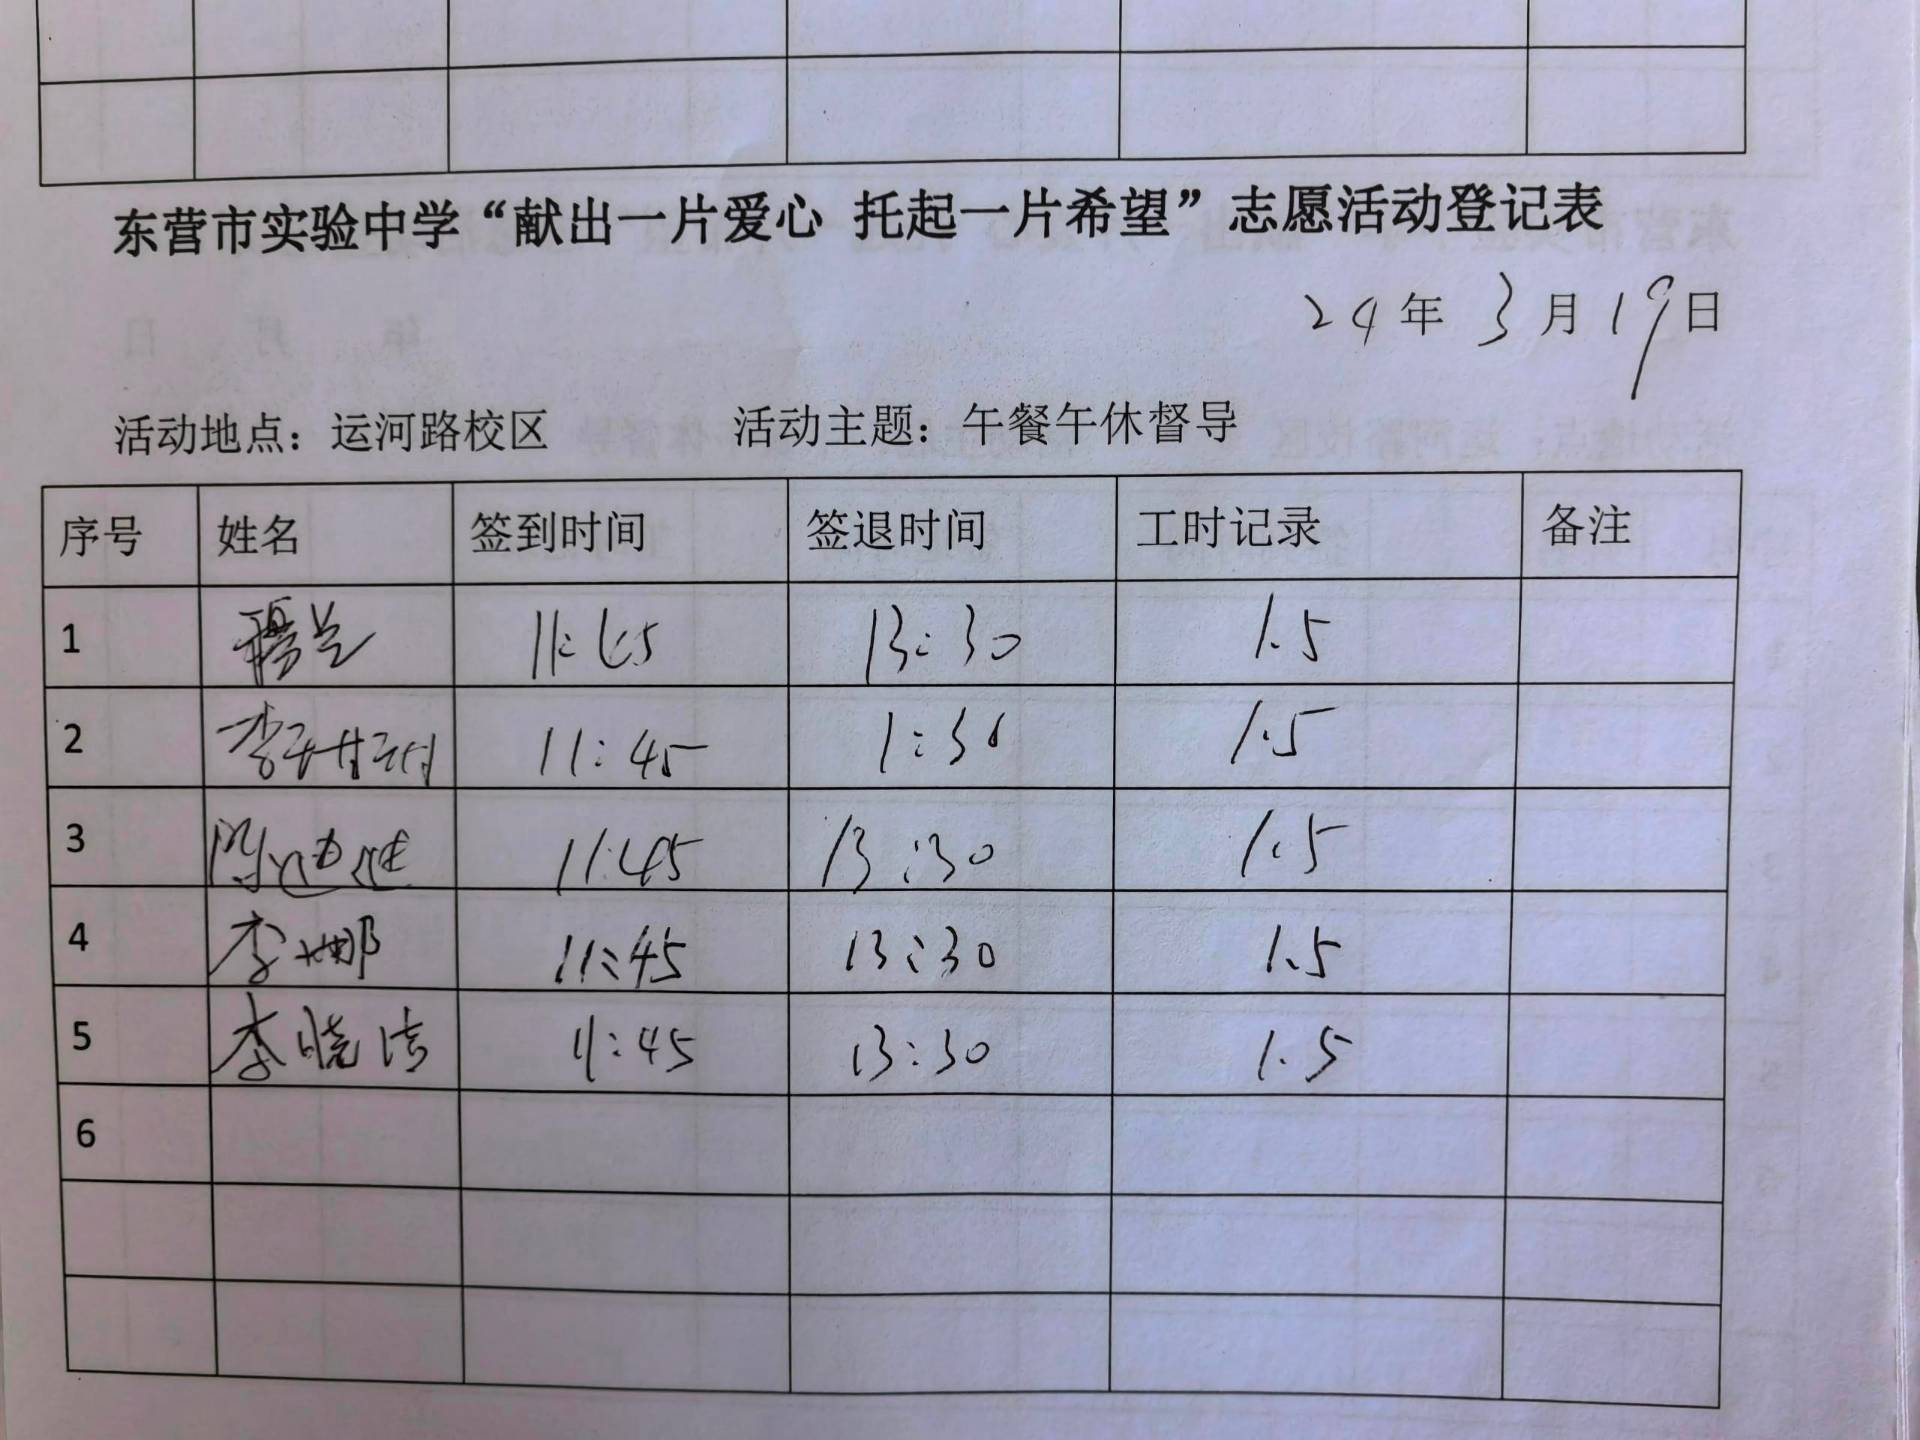 东营市实验中学“献出一片爱心 托起一片希望”志愿活动登记表
24年3月19日
活动地点：运河路校区 活动主题：午餐午休督导
序号 姓名 签到时间 签退时间 工时记录 备注
1 11:45 13:30 1.5
2 李 11:45 1:30 1.5
3 陈 11:45 13:30 1.5
4 李娜 11:45 13:30 1.5
5 李晓洁 11:45 13:30 1.5
6